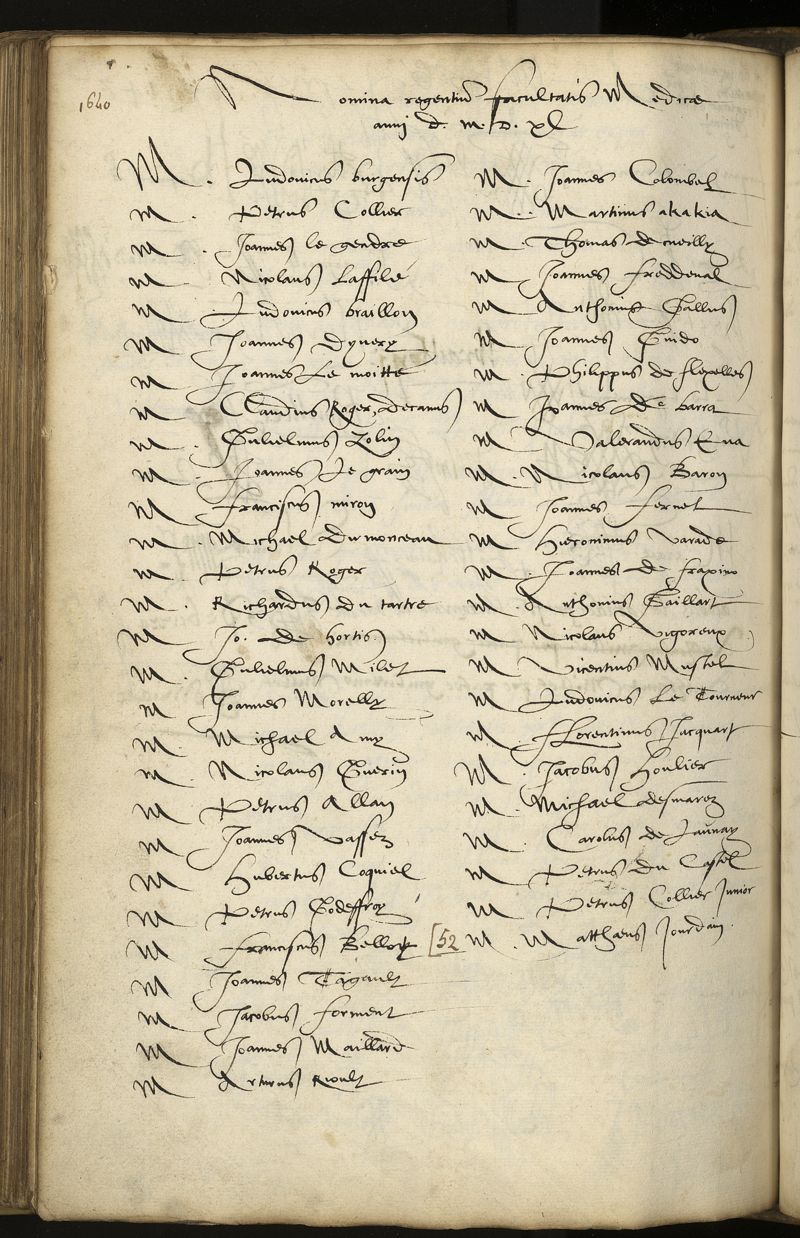 1640
Nomina regentiũ facultatis Medicæ
anni d. m. D. xl
M. Ludovicus burgensis
M. Petrus Collier
M. Joannes le gendre
M Nicolaus Laffilé
M Ludovicus braillon
M Joannes Dyvery
M Joannes Le moitte
M Claudius Roger, decanus
M. Gulielmus
M. Joannes Le grain
M franciscus miron
M. Michael Du monceau
M. Petrus Roger
M. Richardus du tartre
M Jo. de hortis
M. Gulielmus Milet
M Joannes Morelly
M. Michael Amy
M. Nicolaus Guerin
M Petrus Allan
M Joannes Vassez
M Hubertus Coquiel
M Petrus Godeffroy
M franciscus
M Joannes Tagault
M Jacobus forment
M Joannes Maillard
M Arturus Rioult
M. Joannes Colombel
M. Martinus akakia
M. Thomas de cueilly
M Joannes freddeval
M Anthonius Gallus
M Joannes Guido
M. Philippus de flexelles
M Joannes De barra
M Valerandus Eva
M. Nicolaus Baron
M Joannes fernel
M Hieronimus Varade
M. Joannes de fraxino
M. Anthonius Gaillart
M Nicolaus Vigoreux
M Vicentius Mustel
M Ludovicus Le Tourneur
M. fflorentinus Jacquart
M. Jacobus Houlier
M. Michael desmarez
M. Carolus de Launay
M Petrus Du Castel
M Petrus Collier Junior
[52 M. Matthaeus Jourdain.